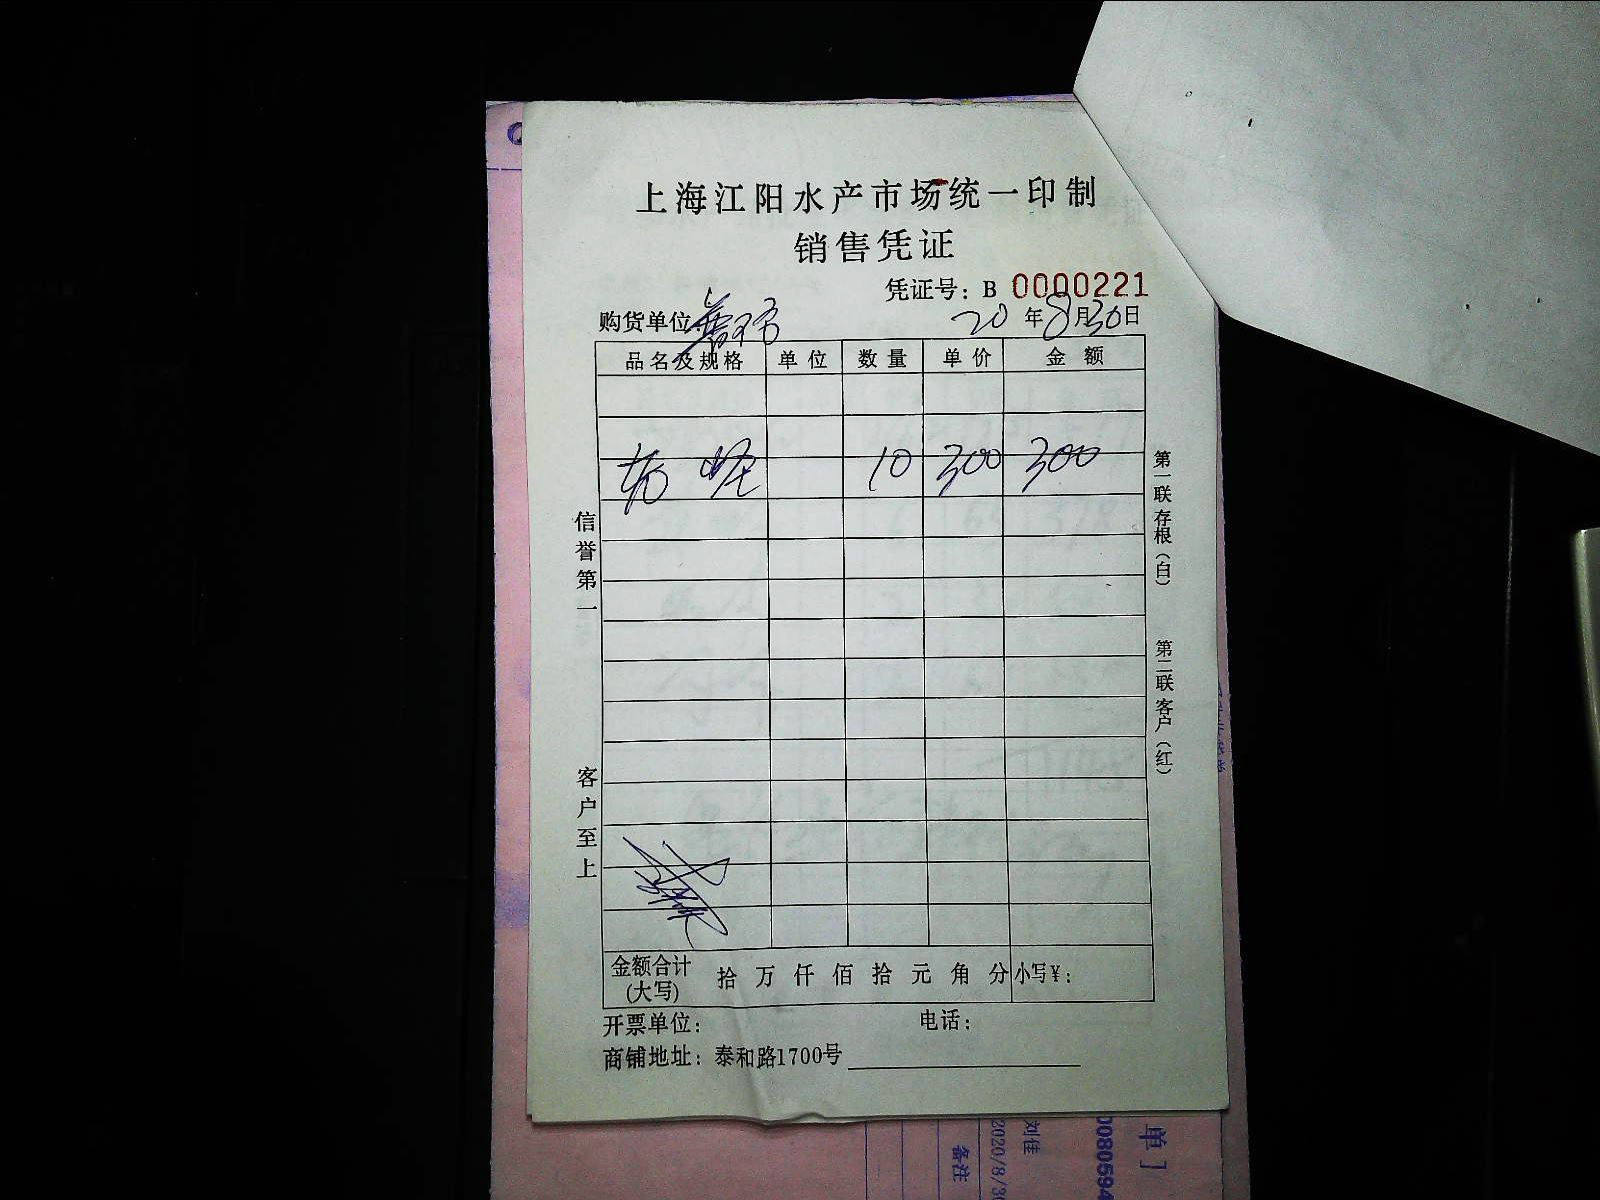 上海江阳水产市场统一印制
销售凭证
凭证号：B 0000221
购货单位：
20 年 8 月 30 日
品名及规格 单位 数量 单价 金额
10 300 300
信誉第一
客户至上
第一联存根（白）
第二联客户（红）
金额合计（大写） 拾 万 仟 佰 拾 元 角 分 小写¥：
开票单位： 电话：
商铺地址：泰和路1700号
单]
0080594
刘佳
2020/8/30
备注